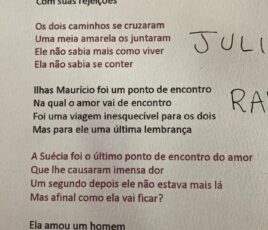 Com suas rejeições
Os dois caminhos se cruzaram
Uma meia amarela os juntaram
Ele não sabia mais como viver
Ela não sabia se conter
JULI
Ilhas Maurício foi um ponto de encontro
Na qual o amor vai de encontro
Foi uma viagem inesquecível para os dois
Mas para ele uma última lembrança
RA
A Suécia foi o último ponto de encontro do amor
Que lhe causaram imensa dor
Um segundo depois ele não estava mais lá
Mas afinal como ela vai ficar?
Ela amou um homem